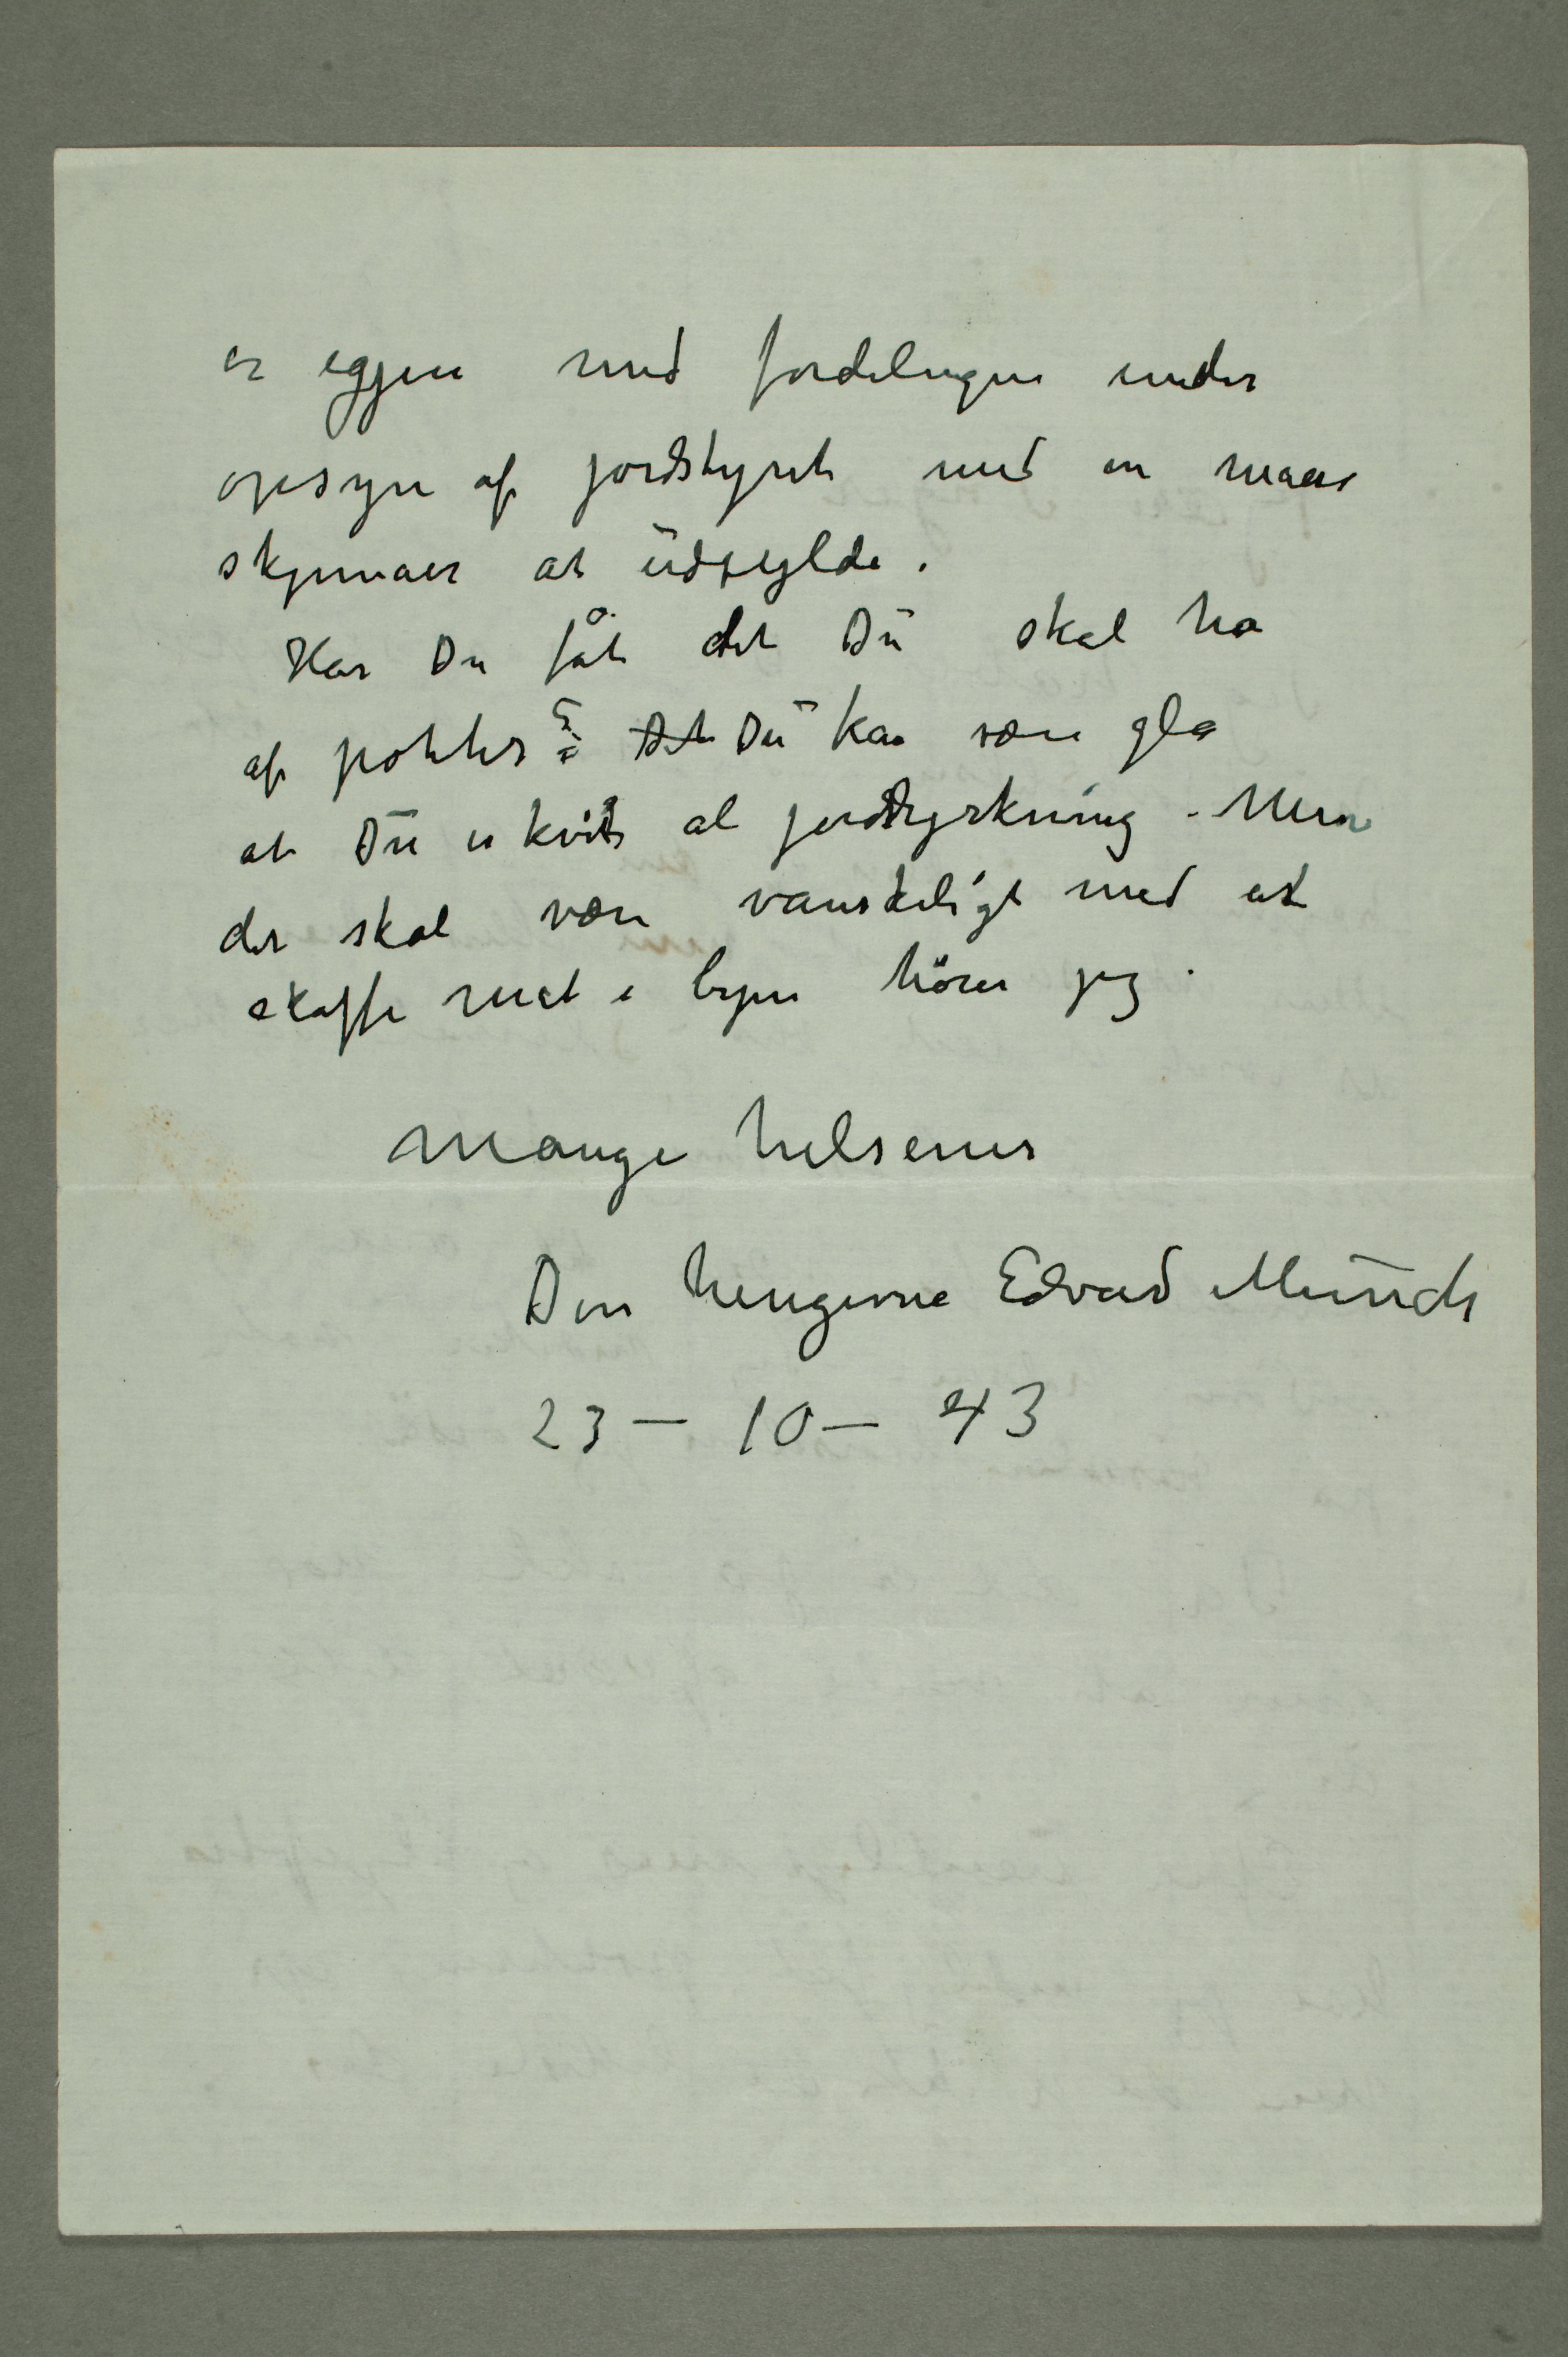 er igjen med fordelingen under
opsyn af jordstyret med en masse
skjemaer at udfylde.
Har Du fåt det Du skal ha
af poteter? Det Du kan være gla
at Du er kvit al jorddyrkning. Men
det skal være vanskeligt med at
skaffe mat i byen hører jeg.
Mange hilsener
Din hengivne Edvard Munch
23 – 10 – 43